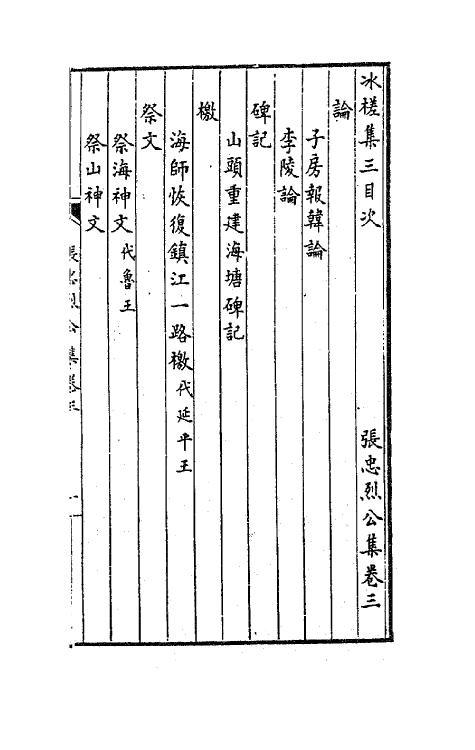 冰槎集三目次 張忠烈公集卷三
論
子房報韓論
李陵論
碑記
山頭重建海塘碑記
檄
海師恢復鎮江一路檄代延平王
祭文
祭海神文代魯王
祭山神文
張忠烈公集卷三 一